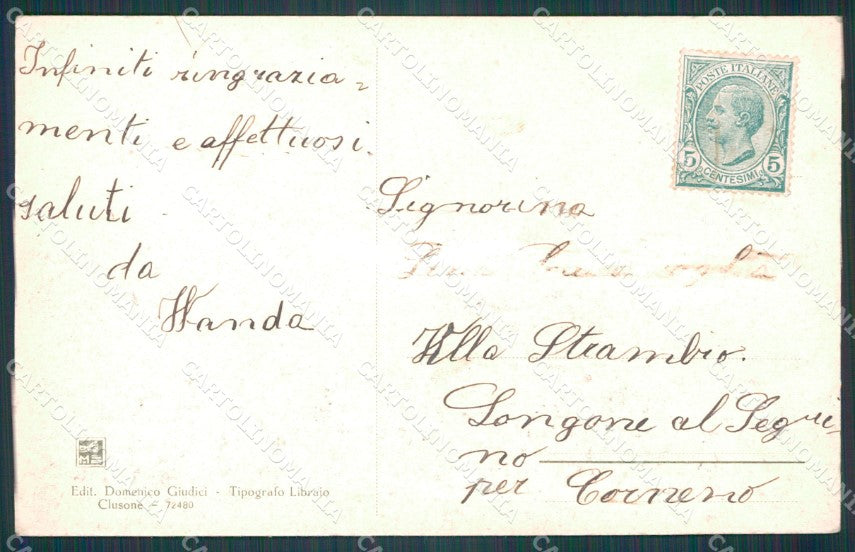 Infiniti ringrazia=
menti e affettuosi
saluti
da
Wanda
POSTE ITALIANE
5 CENTESIMI 5
Signorina
Villa Strambio.
Longone al Segri-
no
per Corneno
Edit. Domenico Giudici - Tipografo Libraio
Clusone - 72480
CARTOLINOMANIA